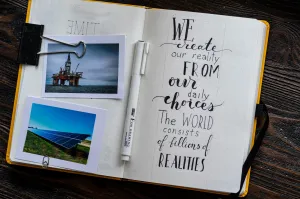 TIME
WE
create
our reality
FROM
our
daily
choices
The WORLD
consists
of billions of
REALITIES